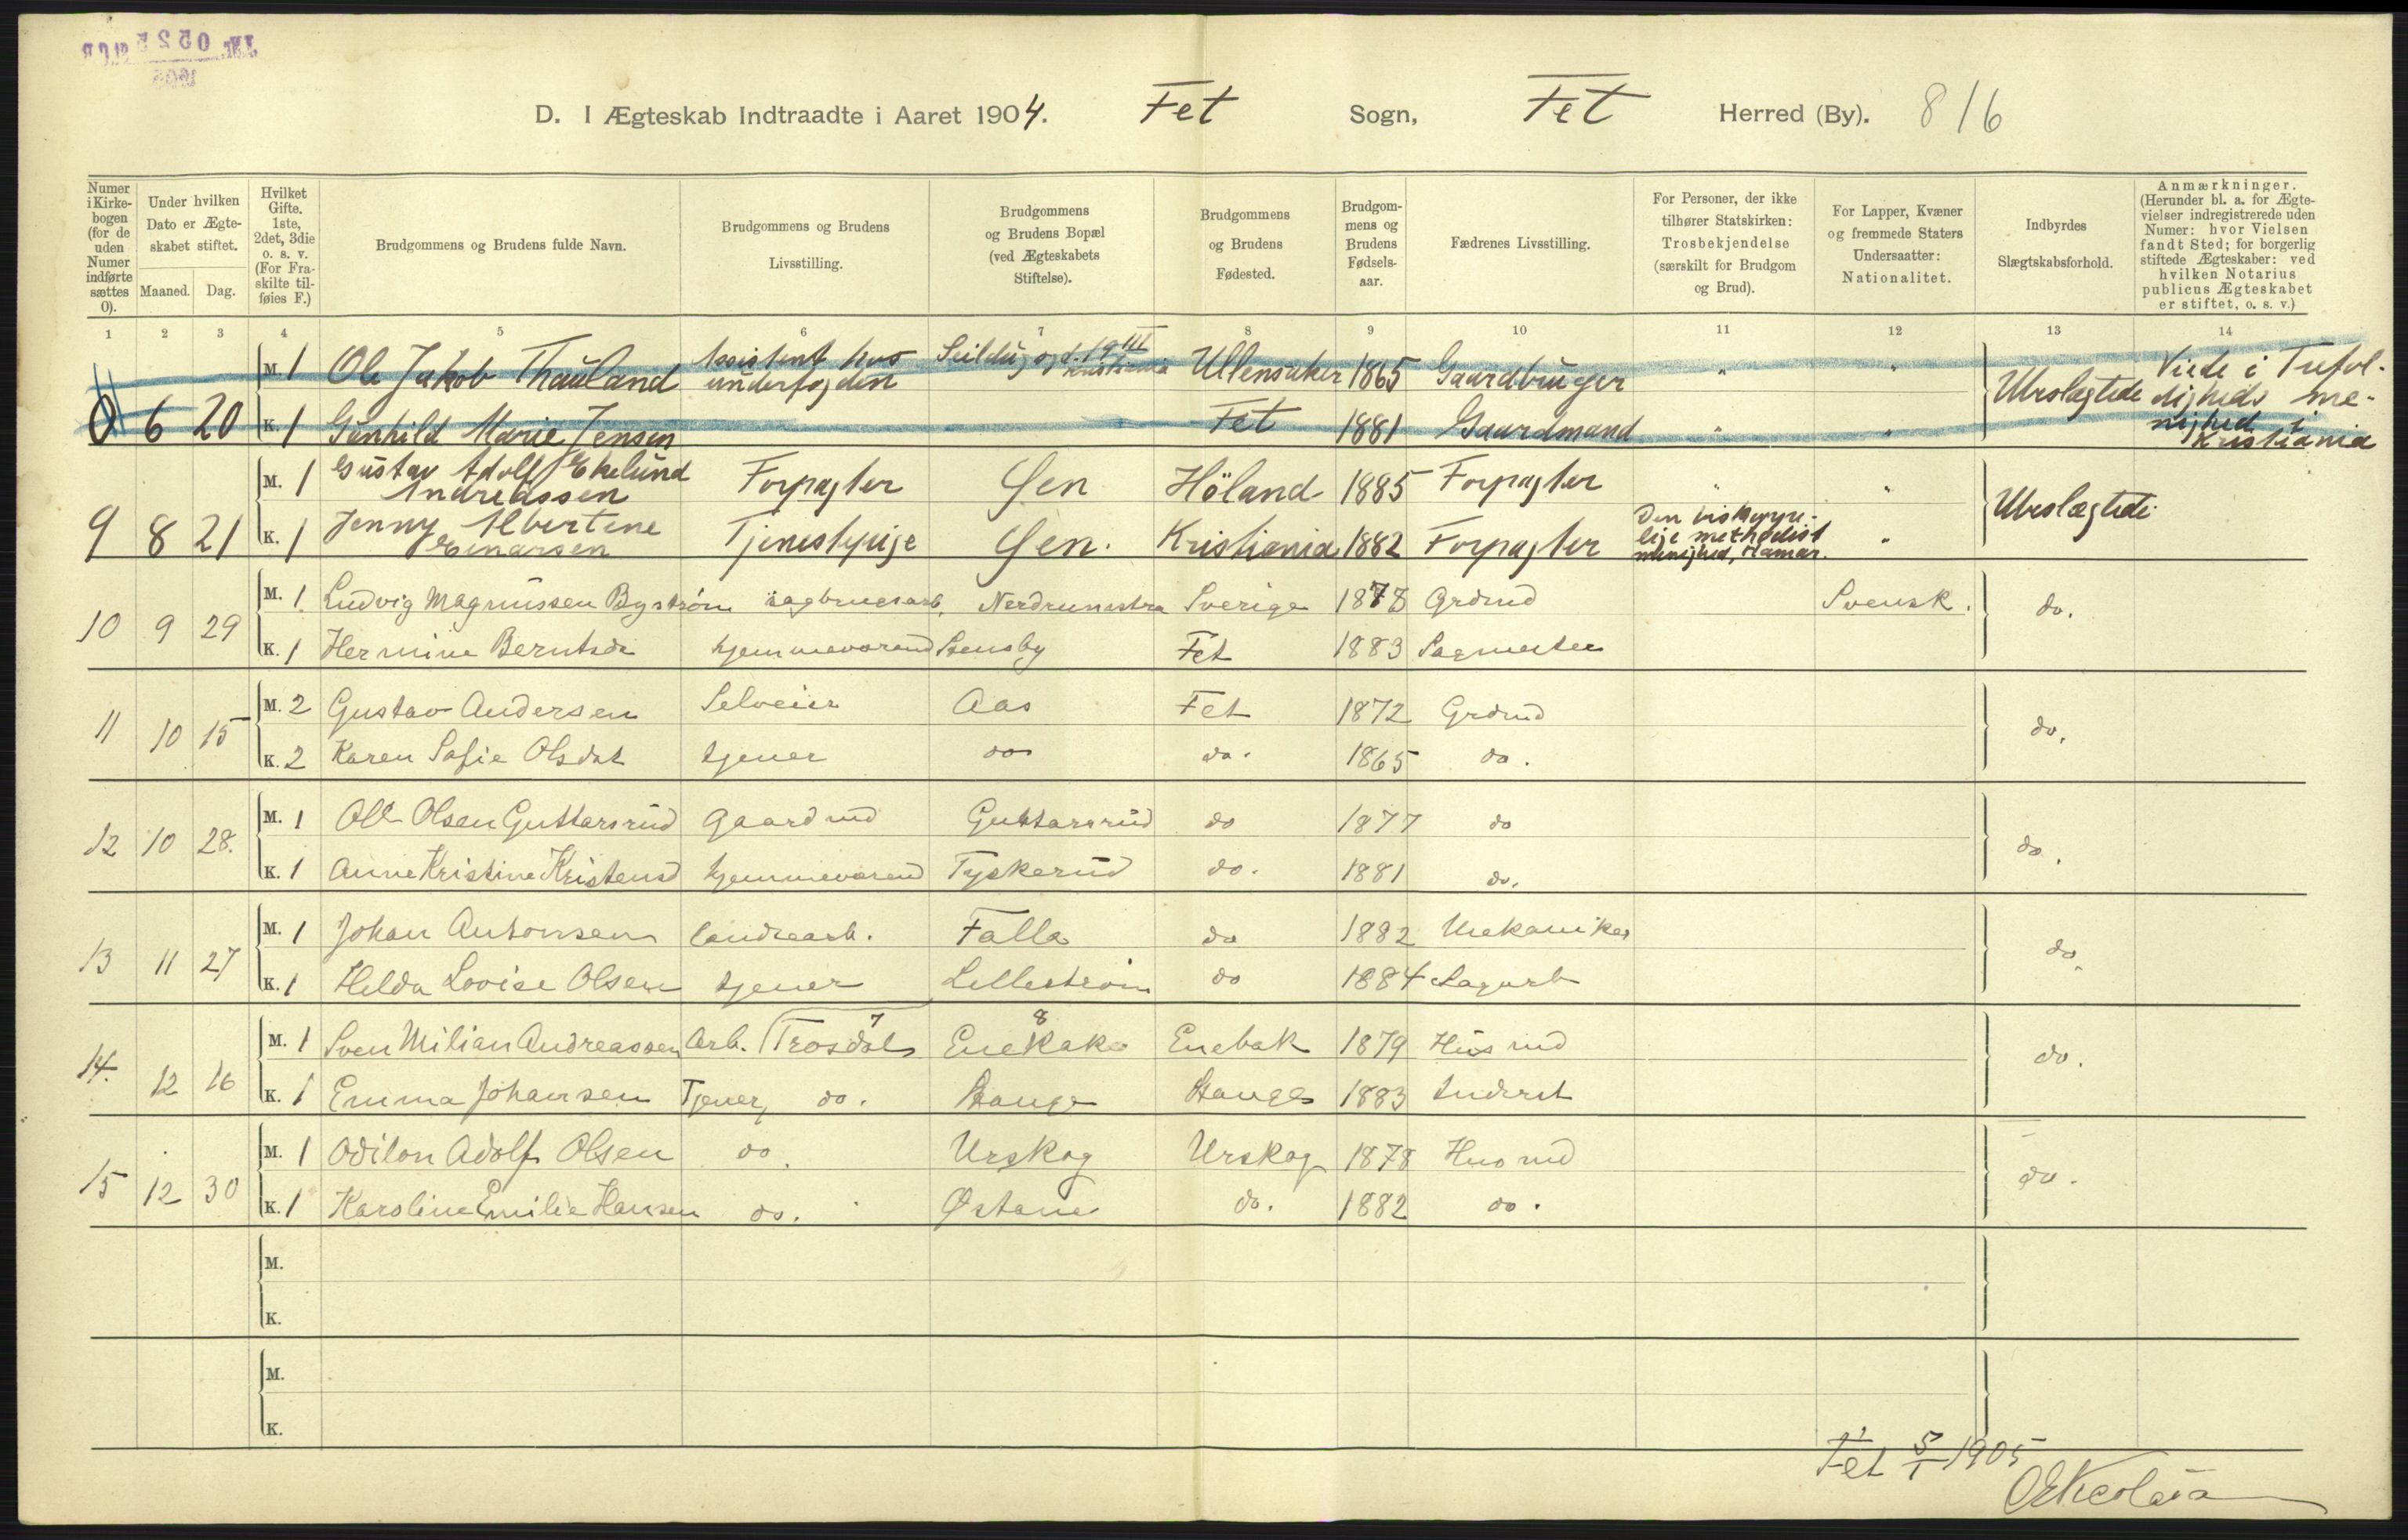 D. I Ægteskab Indtraadte i Aaret 1904. Fet Sogn, Fet Herred (By). 816
Numer i Kirkebogen (for de uden Numer indførte sættes 0).
Under hvilken Dato er Ægteskabet stiftet.
Maaned. Dag.
Hvilket Gifte. 1ste, 2det, 3die o. s. v. (For Fraskilte tilføies F.)
Brudgommens og Brudens fulde Navn.
Brudgommens og Brudens Livsstilling.
Brudgommens og Brudens Bopæl (ved Ægteskabets Stiftelse).
Brudgommens og Brudens Fødested.
Brudgommens og Brudens Fødselsaar.
Fædrenes Livsstilling.
For Personer, der ikke tilhører Statskirken: Trosbekjendelse (særskilt for Brudgom og Brud).
For Lapper, Kvæner og fremmede Staters Undersaatter: Nationalitet.
Indbyrdes Slægtskabsforhold.
Anmærkninger. (Herunder bl. a. for Ægtevielser indregistrerede uden Numer: hvor Vielsen fandt Sted; for borgerlig stiftede Ægteskaber: ved hvilken Notarius publicus Ægteskabet er stiftet, o. s. v.)
1 2 3 4 5 6 7 8 9 10 11 12 13 14
M. 1 Ole Jakob Thauland Assistent hos underfogden Seildugsgd. 19 III Kristiania Ullensaker 1865 Gaardbruger " "
0 6 20 K. 1 Gunhild Marie Jensen Fet 1881 Gaardmand " " Ubeslægtede Viede i Trefoldigheds menighed i Kristiania
M. 1 Gustav Adolf Ekelund Andreassen Forpagter Gen Höland 1885 Forpagter " "
9 8 21 K. 1 Jenny Albertine Einarsen Tjenestepige Gen. Kristiania 1882 Forpagter Den biskoppelige methodist menighed, Hamar. " Ubeslægtede
M. 1 Ludvig Magnussen Byström sagbrugsarb. Nerdrumstra Sverige 1878 Grdmd Svensk.
10 9 29 K. 1 Hermine Berntsdr hjemmeværend Stensby Fet 1883 Sagmester do.
M. 2 Gustav Andersen Selveier Aas Fet 1872 Grdmd
11 10 15 K. 2 Karen Sofie Olsdat tjener do do. 1865 do. do.
M. 1 Ole Olsen Guttarsrud gaardmd Guttarsrud do 1877 do
12 10 28. K. 1 Anne Kristine Kristensd hjemmeværend Tyskerud do. 1881 do. do.
M. 1 Johan Antonsen landearb. Falla do 1882 Mekaniker
13 11 27 K. 1 Helda Lovise Olsen tjener Lilleström do 1884 Sagarb do.
M. 1 Sven Milian Andreassen Arb. Trosdal 7 Enebak 8 Enebak 1879 Husmd
14. 12 16 K. 1 Emma Johansen Tjener, do. Stange Stange 1883 Inderst do.
M. 1 Odilon Adolf Olsen do. Urskog Urskog 1878 Husmd
15 12 30 K. 1 Karoline Emilie Hansen do. Østane do. 1882 do. do.
M.
K.
M.
K.
Fet 5/1 1905